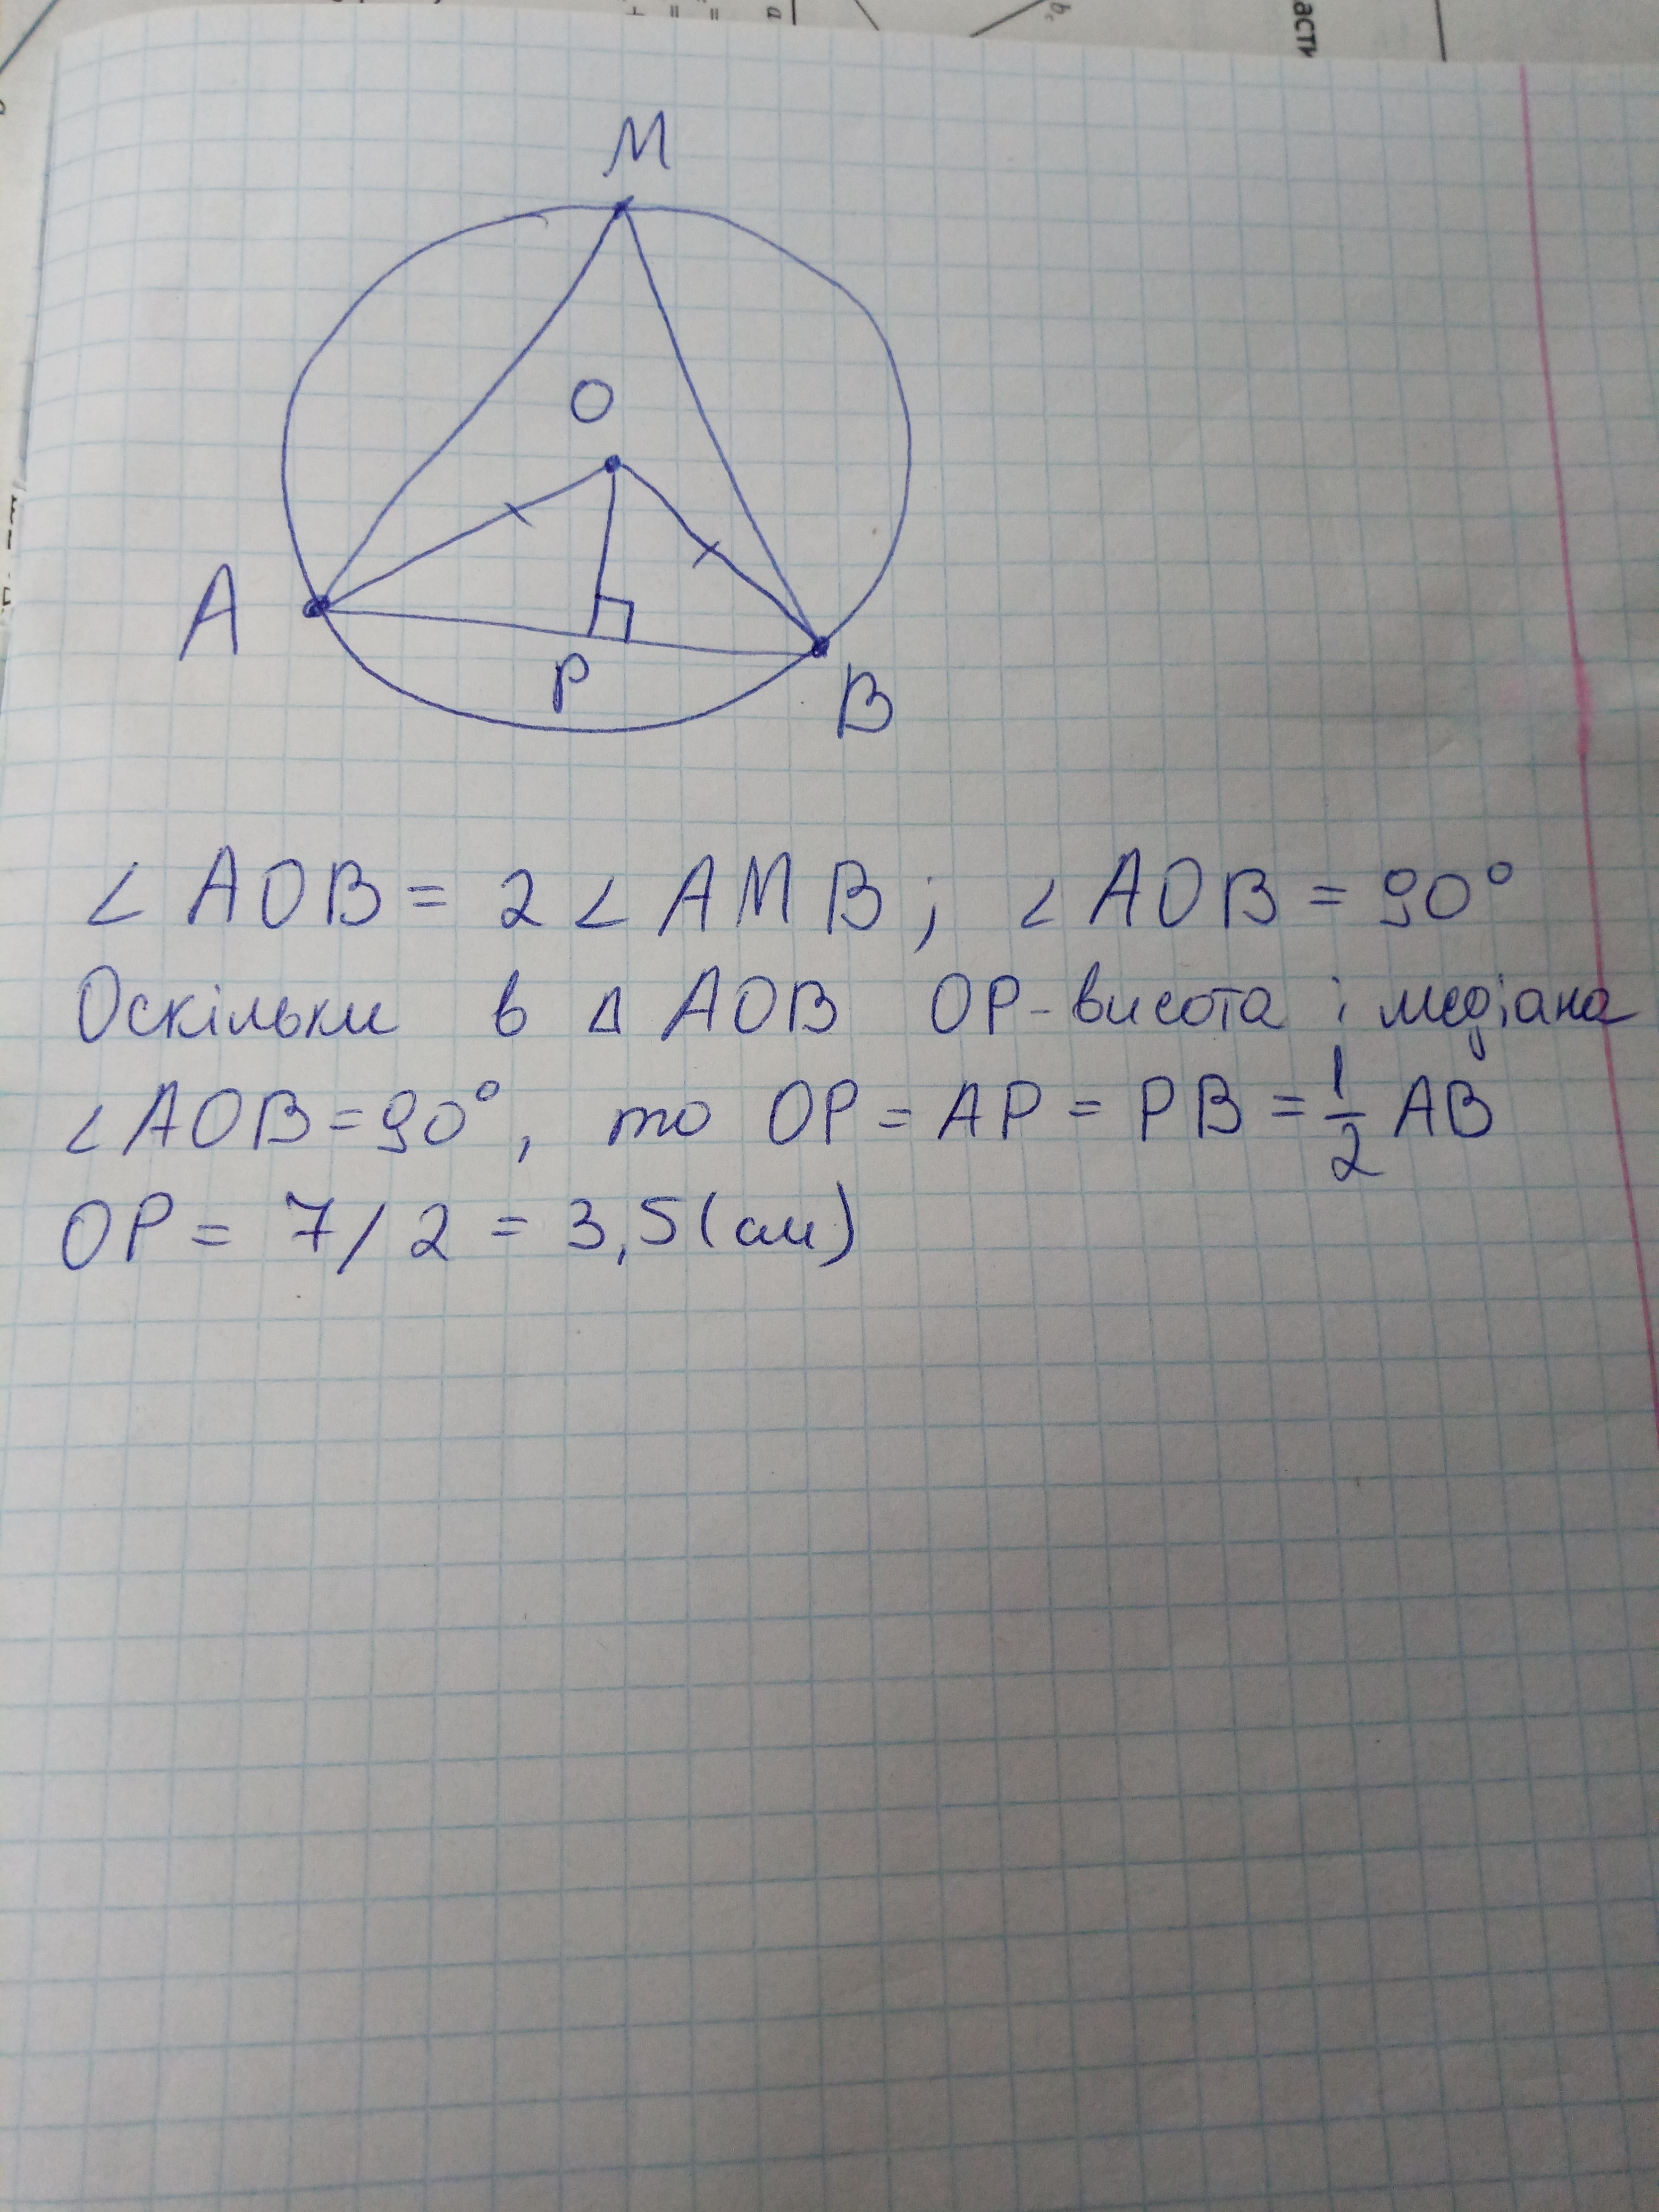 асти
M
O
A
P
B
∠ AOB = 2 ∠ AMB; ∠ AOB = 90°
Оскільки в Δ AOB OP-висота і медіана
∠AOB=90°, то OP = AP = PB = 1/2 AB
OP = 7/2 = 3,5(см)